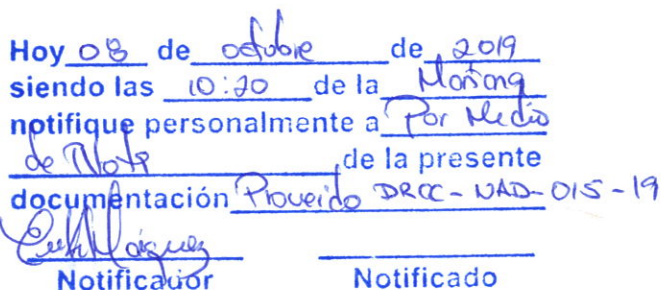 Hoy 08 de octubre de 2019
siendo las 10:20 de la Mañana
notifique personalmente a Por Medio
de Nota de la presente
documentación Proveido DRCC-UAD-015-19
Notificador Notificado